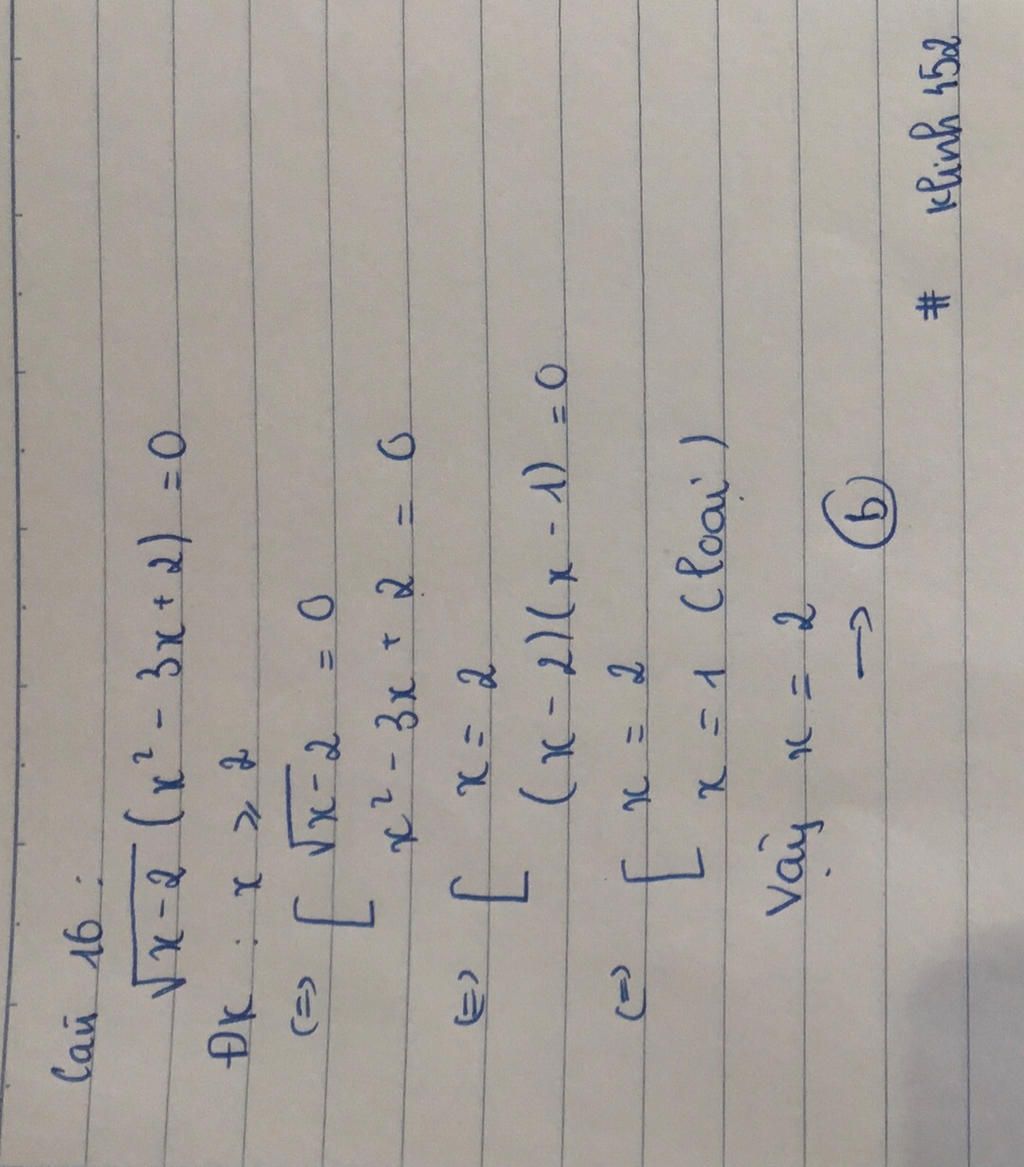 Câu 16 :
√x-2 (x² - 3x + 2) = 0
ĐK : x ≥ 2
(=) [ √x-2 = 0
x² - 3x + 2 = 0
(=) [ x = 2
(x - 2)(x - 1) = 0
(=) [ x = 2
x = 1 (loại)
Vậy x = 2
→ b
# Khinh 452